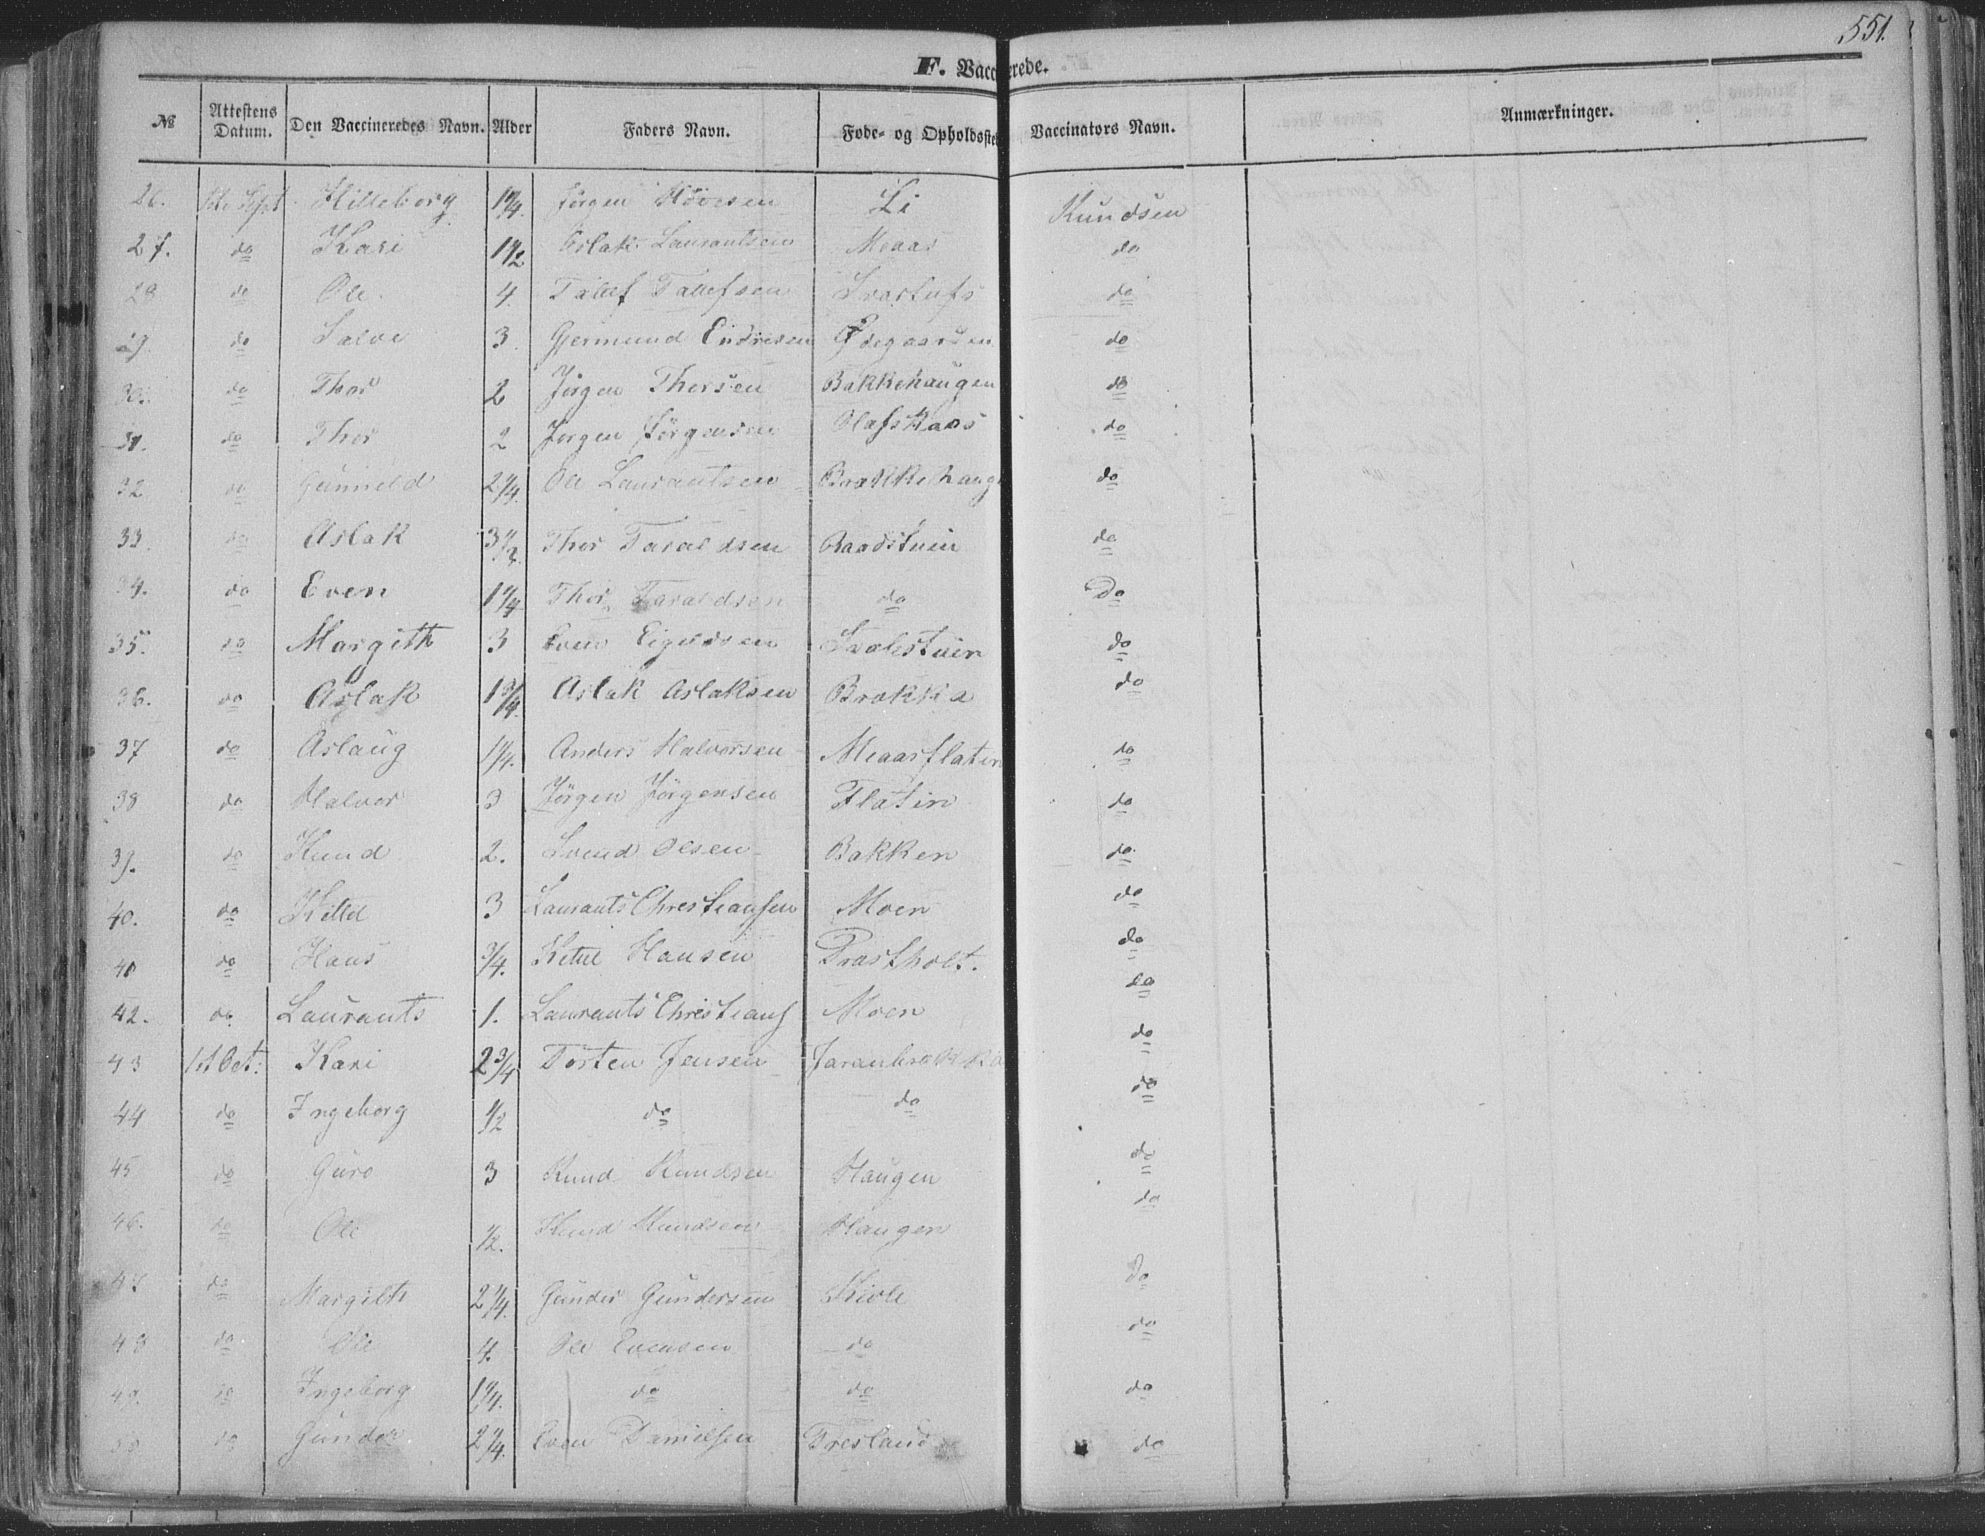 551.
F. Vaccinerede.
№ Attestens Datum. Den Vaccineredes Navn. Alder Faders Navn. Føde- og Opholdsste Vaccinators Navn. Anmærkninger.
26. Sept Hilleborg 1 1/4. Jörgen Li Knudsen
27. do Kari 1 1/2 Aslak Laurantsen Meaas do
28 do Ole. 4. Tallef Tallefsen do
29. do Salve 3. Gjermund Endresen Ødegaarden do
30. do Thor 2 Jörgen Thorsen Bakkehaugen do
31. do Thor 2 Jörgen Jörgensen Olafskaas do
32 do Gunnild 2 1/4. Ole Laurantsen Brakkehaug do
33. do Aslak 3 1/2. Thor Taraldsen Baadstuen do
34. do Even 1 1/4 Thor Taraldsen do Do
35. do Margith 3 Even do
36. do Aslak 1 3/4. Aslak Aslaksen Brakka do
37 do Aslaug 1/4. Anders Halvorsen Meaasflatin do
38 do Halvor 3 Jörgen Jörgensen Flatin do
39. do Knud 2. Svend Olsen Bakken do.
40. do Killd 3 Laurants Christiansen Moen do
41 do Hans 3/4. Ketil Hansen Prastholt. do
42. do. Laurants 1. Laurants Christians Moen do
43 1st Oct: Kari 2 3/4 Torsten Jensen Jaranbrakka do
44 do Ingeborg 1/2 do do do
45 do Guro 3 Knud Knudsen Haugen do
46. do Ole 1/2. Knud Knudsen Haugen do
47 do Margith 2 1/4. Gunder Gundersen Kiole Do
48 do Ole 4. Ole Evensen do do
49. do Ingeborg 1 1/4. do do do
50 do Gunder 2 1/4. Even Danielsen Tresland do